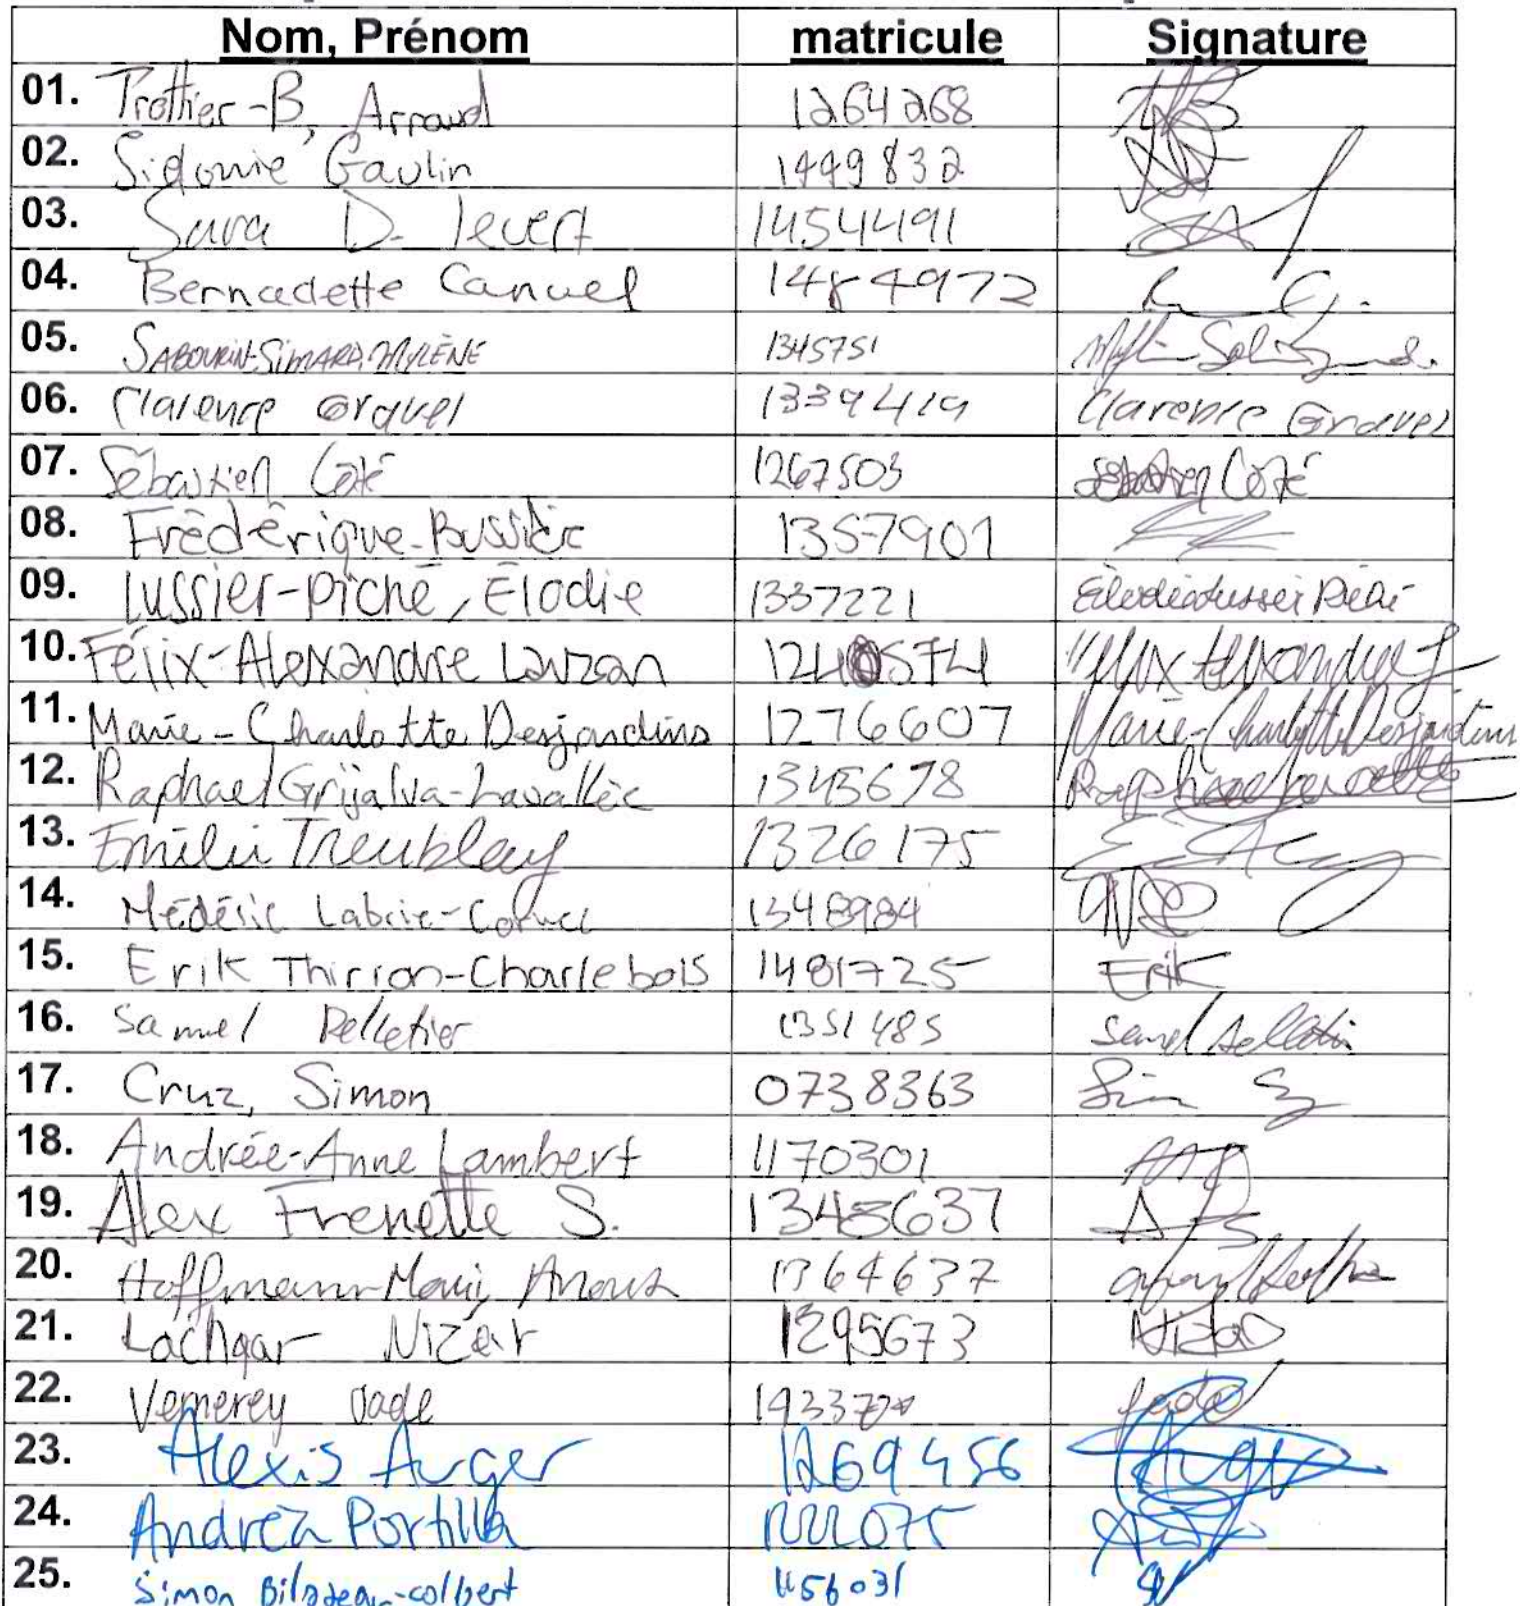 Nom, Prénom matricule Signature
01. Trottier-B, Arnaud 1264268
02. Sidonie Gaulin 1449832
03. Sara D. levert 1454491
04. Bernadette Canuel 1484972
05. SABOURIN-SIMARD, MYLÈNE 1345751
06. Clarence Gravel 1339419 Clarence Gravel
07. Sébastien Côté 1267503 Sébastien Côté
08. Frédérique Bussière 1357901
09. Lussier-Piché, Élodie 1337221
10. Félix-Alexandre Lauzon
11. Marie-Charlotte Desjardins 1276607 Marie-Charlotte Desjardins
12. Raphael Grijalva-Lavallée 1345678
13. Émilie Tremblay 1326175
14. Médéric Labrie- 1348984
15. Erik Thirion-Charlebois 1481725 Erik
16. Samuel Pelletier 1351485 Samuel Pelletier
17. Cruz, Simon 0738363
18. Andrée-Anne Lambert 1170301
19. Alex Frenette S. 1345637
20. Hoffmann-Marie, Anouk 1364637
21. Lachgar Nizar 1295673
22. Vemerey Jade Jade
23. Alexis Auger 1269456 Auger
24. Andréa Portilla 1222075
25. Simon Bilodeau-colbert 1156031